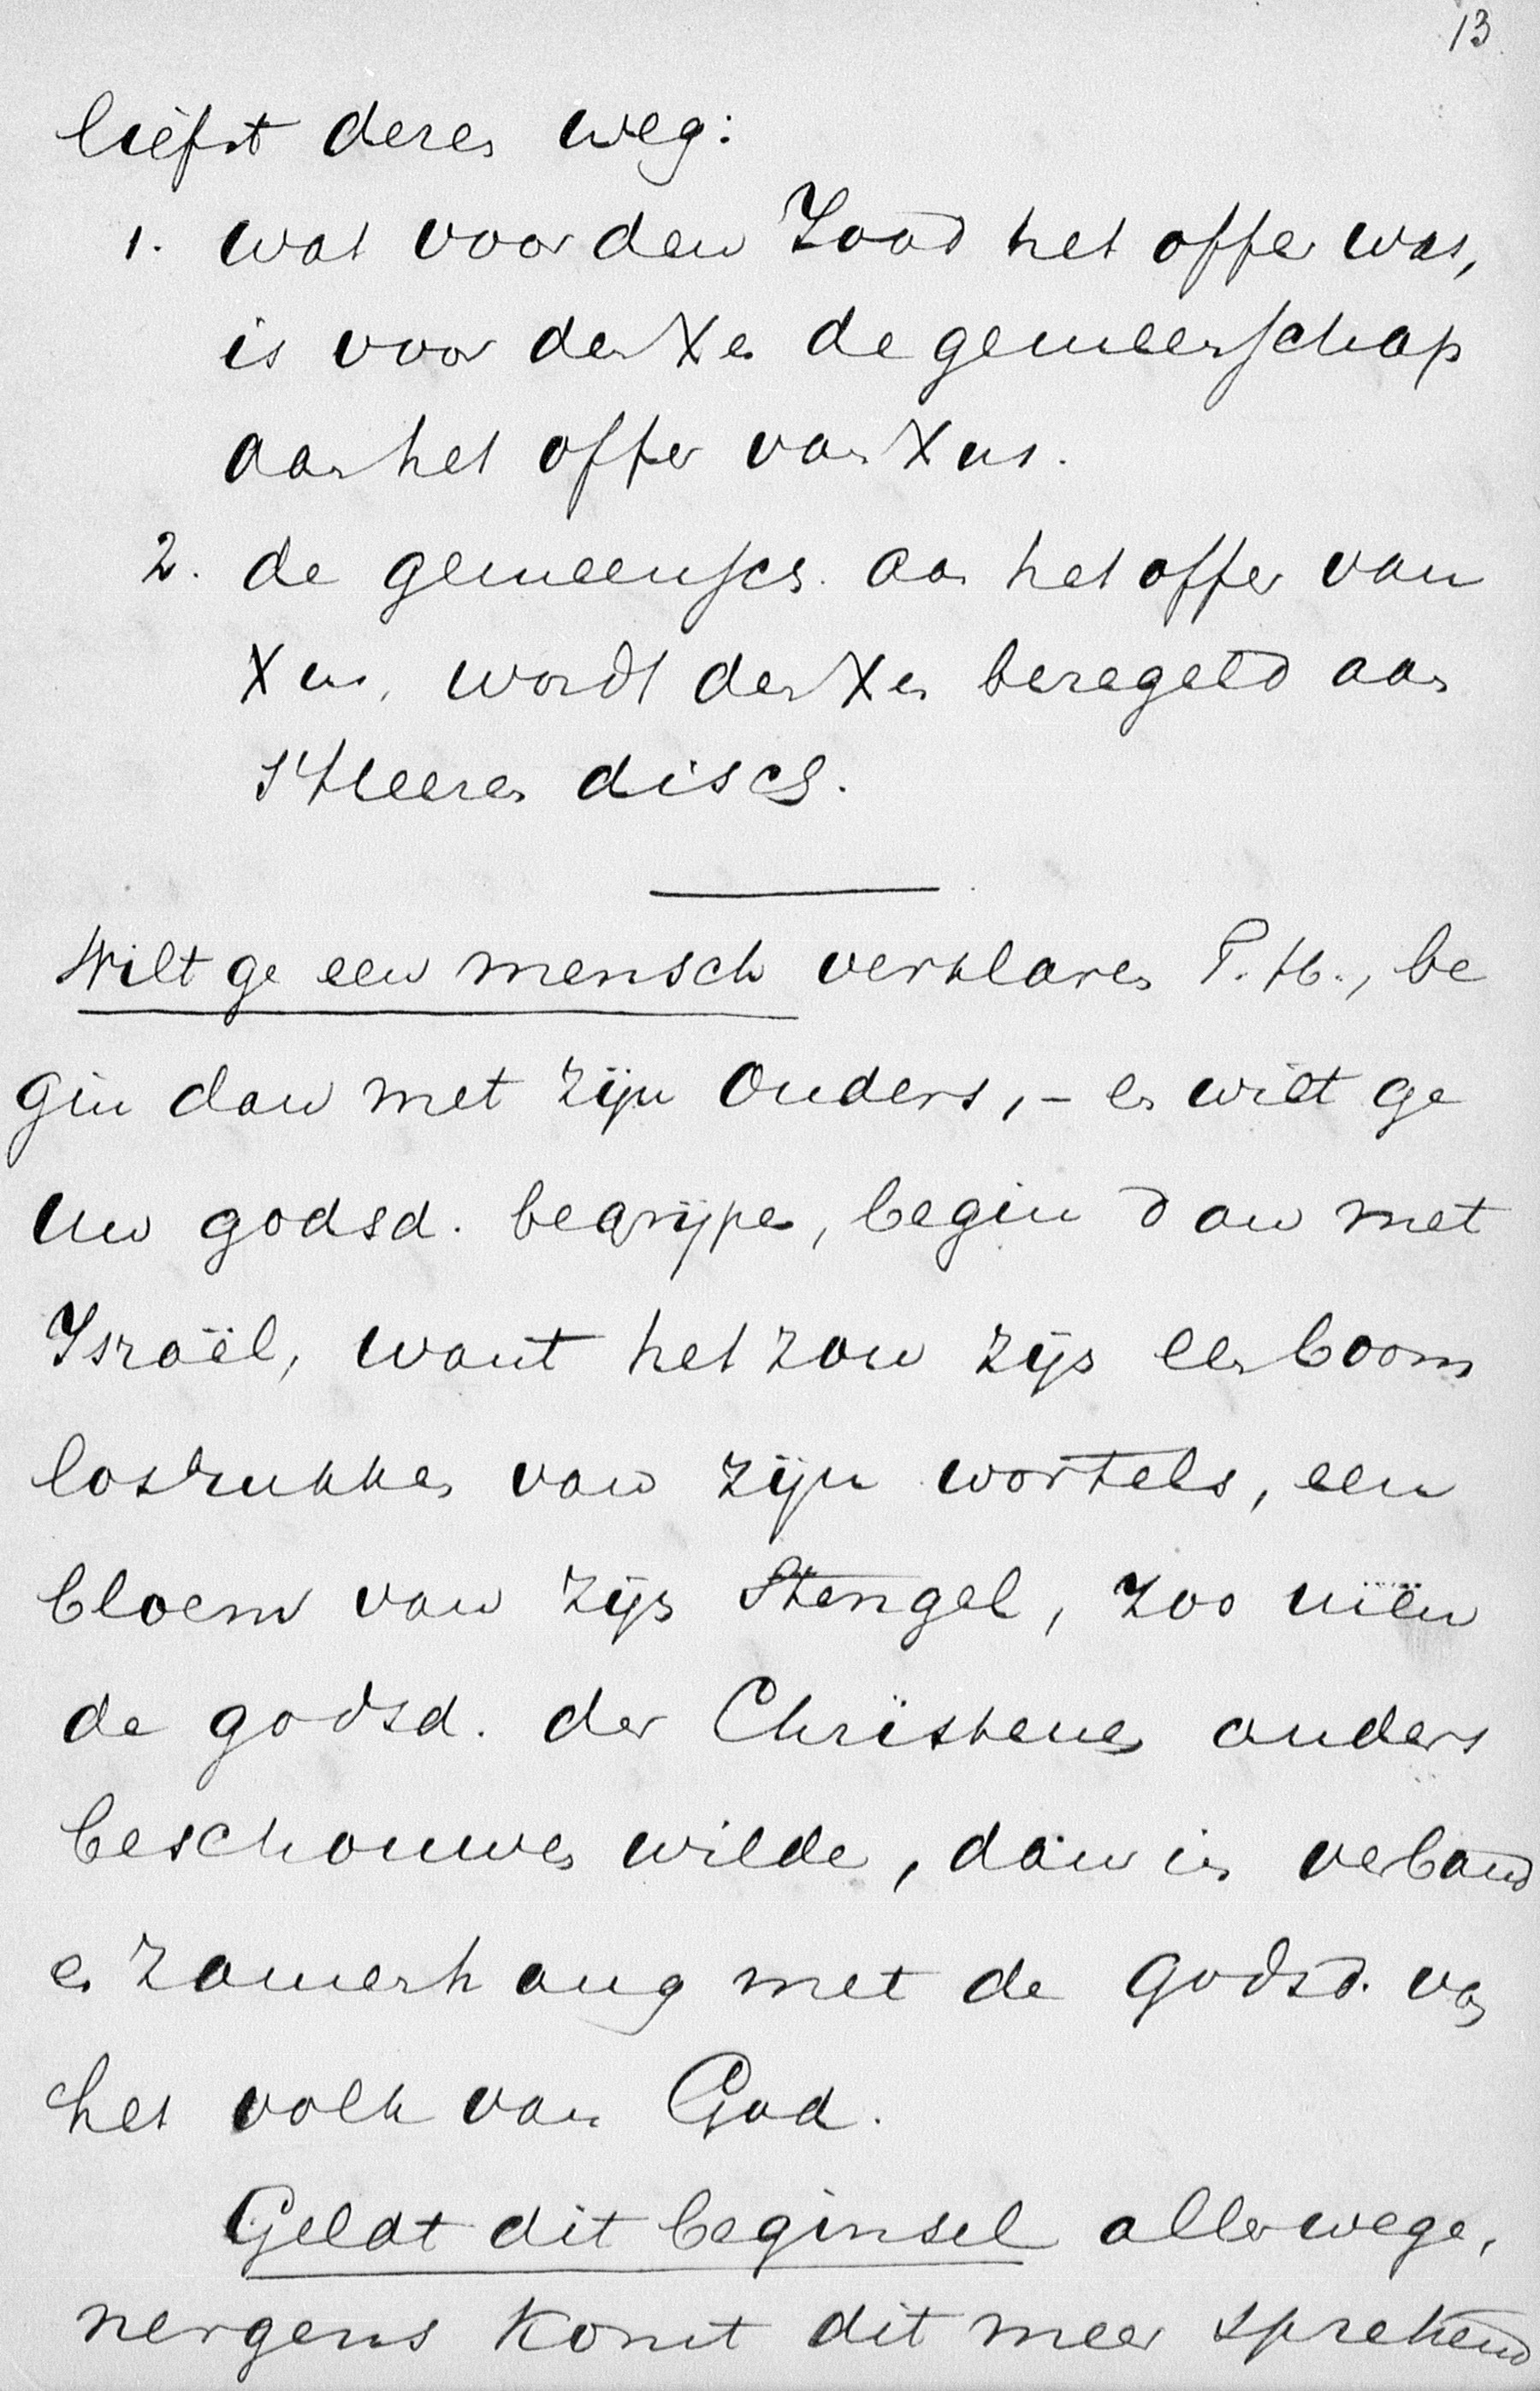 13
liefst deren weg:
1. wat voor den Jood het offer was,
is voor den Xen de gemeenschap
aan het offer van Xus.
2. de gemeensch. aan het offer van
Xus, wordt den Xen bezegeld aan
s'Heeren disch.
Wilt ge een mensch verklaren T. H., be
gin dan met zijn Ouders, - en wilt ge
Uw godsd. begrijpen, begin dan met
Israël, want het zou zijn een boom
losrukken van zijn wortels, een
bloem van zijn Stengel, zoo men
de godsd. der Christenen anders
beschouwen wilde, dan in verband
en zamenhang met de godsd. van
het volk van God.
Geldt dit beginsel allerwege,
nergens komt dit meer sprekend